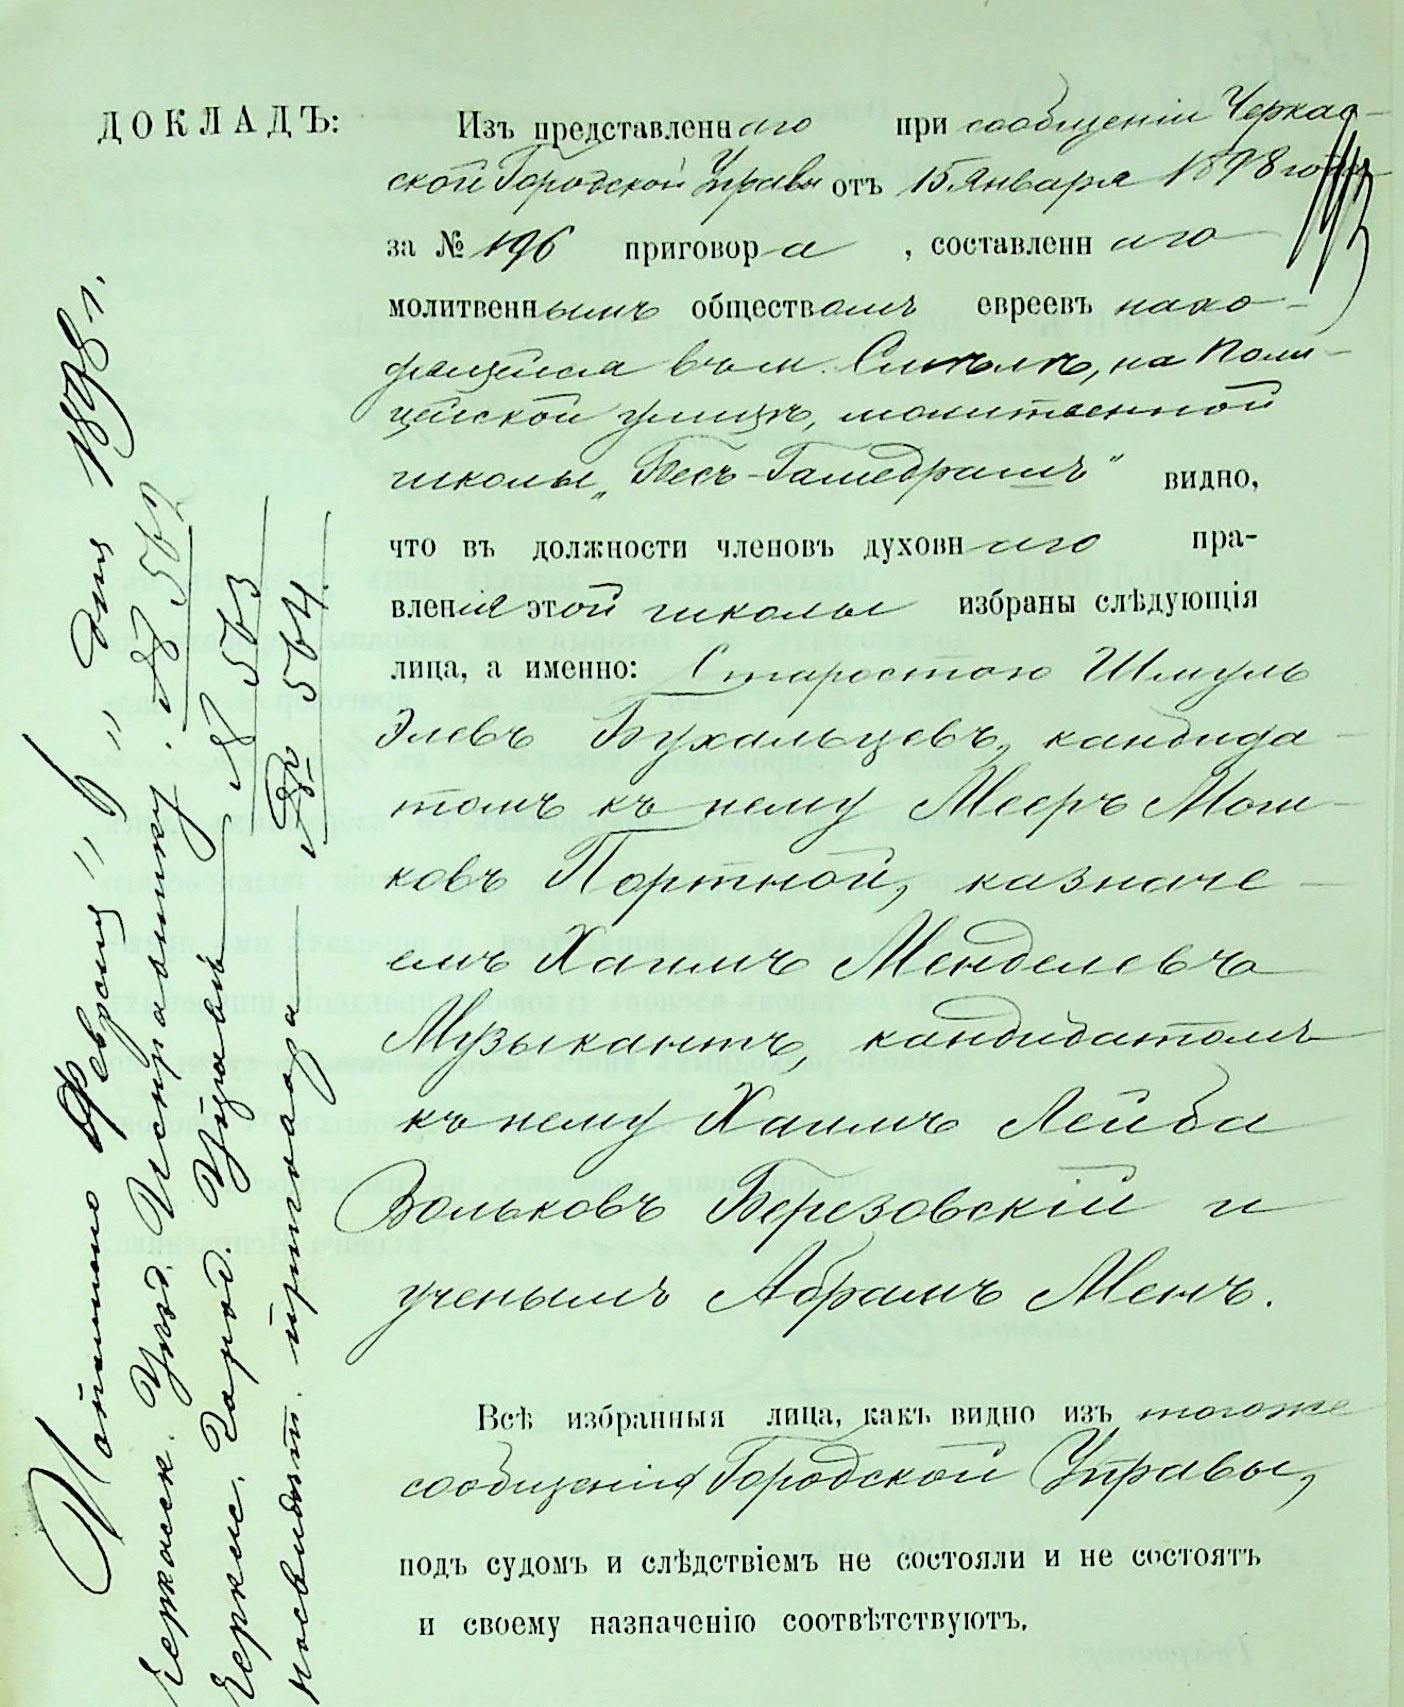 ДОКЛАДЪ:
Изъ представленнаго при сообщеніи Черкас-
ской Городской Управы отъ 15 Января 1898 года
за № 196 приговора, составленнаго
молитвеннымъ обществомъ евреевъ нахо-
дящейся въ м. Смѣлѣ, на Поли-
цейской улицѣ, молитвенной
школы „Бесъ-Гамедрашъ" видно,
что въ должности членовъ духовнаго пра-
вленія этой школы избраны слѣдующія
лица, а именно: Старостою Шмуль
Элевъ Бухальцевъ, кандида-
томъ къ нему Мееръ Мош-
ковъ Портной, казначе-
емъ Хаимъ Менделевъ
Музыкантъ, кандидатомъ
къ нему Хаимъ Лейба
Вольковъ Березовскій и
ученымъ Абрамъ Менъ.
Всѣ избранныя лица, какъ видно изъ тогоже
сообщенія Городской Управы,
подъ судомъ и слѣдствіемъ не состояли и не состоятъ
и своему назначенію соотвѣтствуютъ.
Исполнено Февраля "6" дня 1898 г.
Черкаск. Уѣзд. Исправнику. № 562
Черкас. Город. Управѣ № 563
приговора № 564.